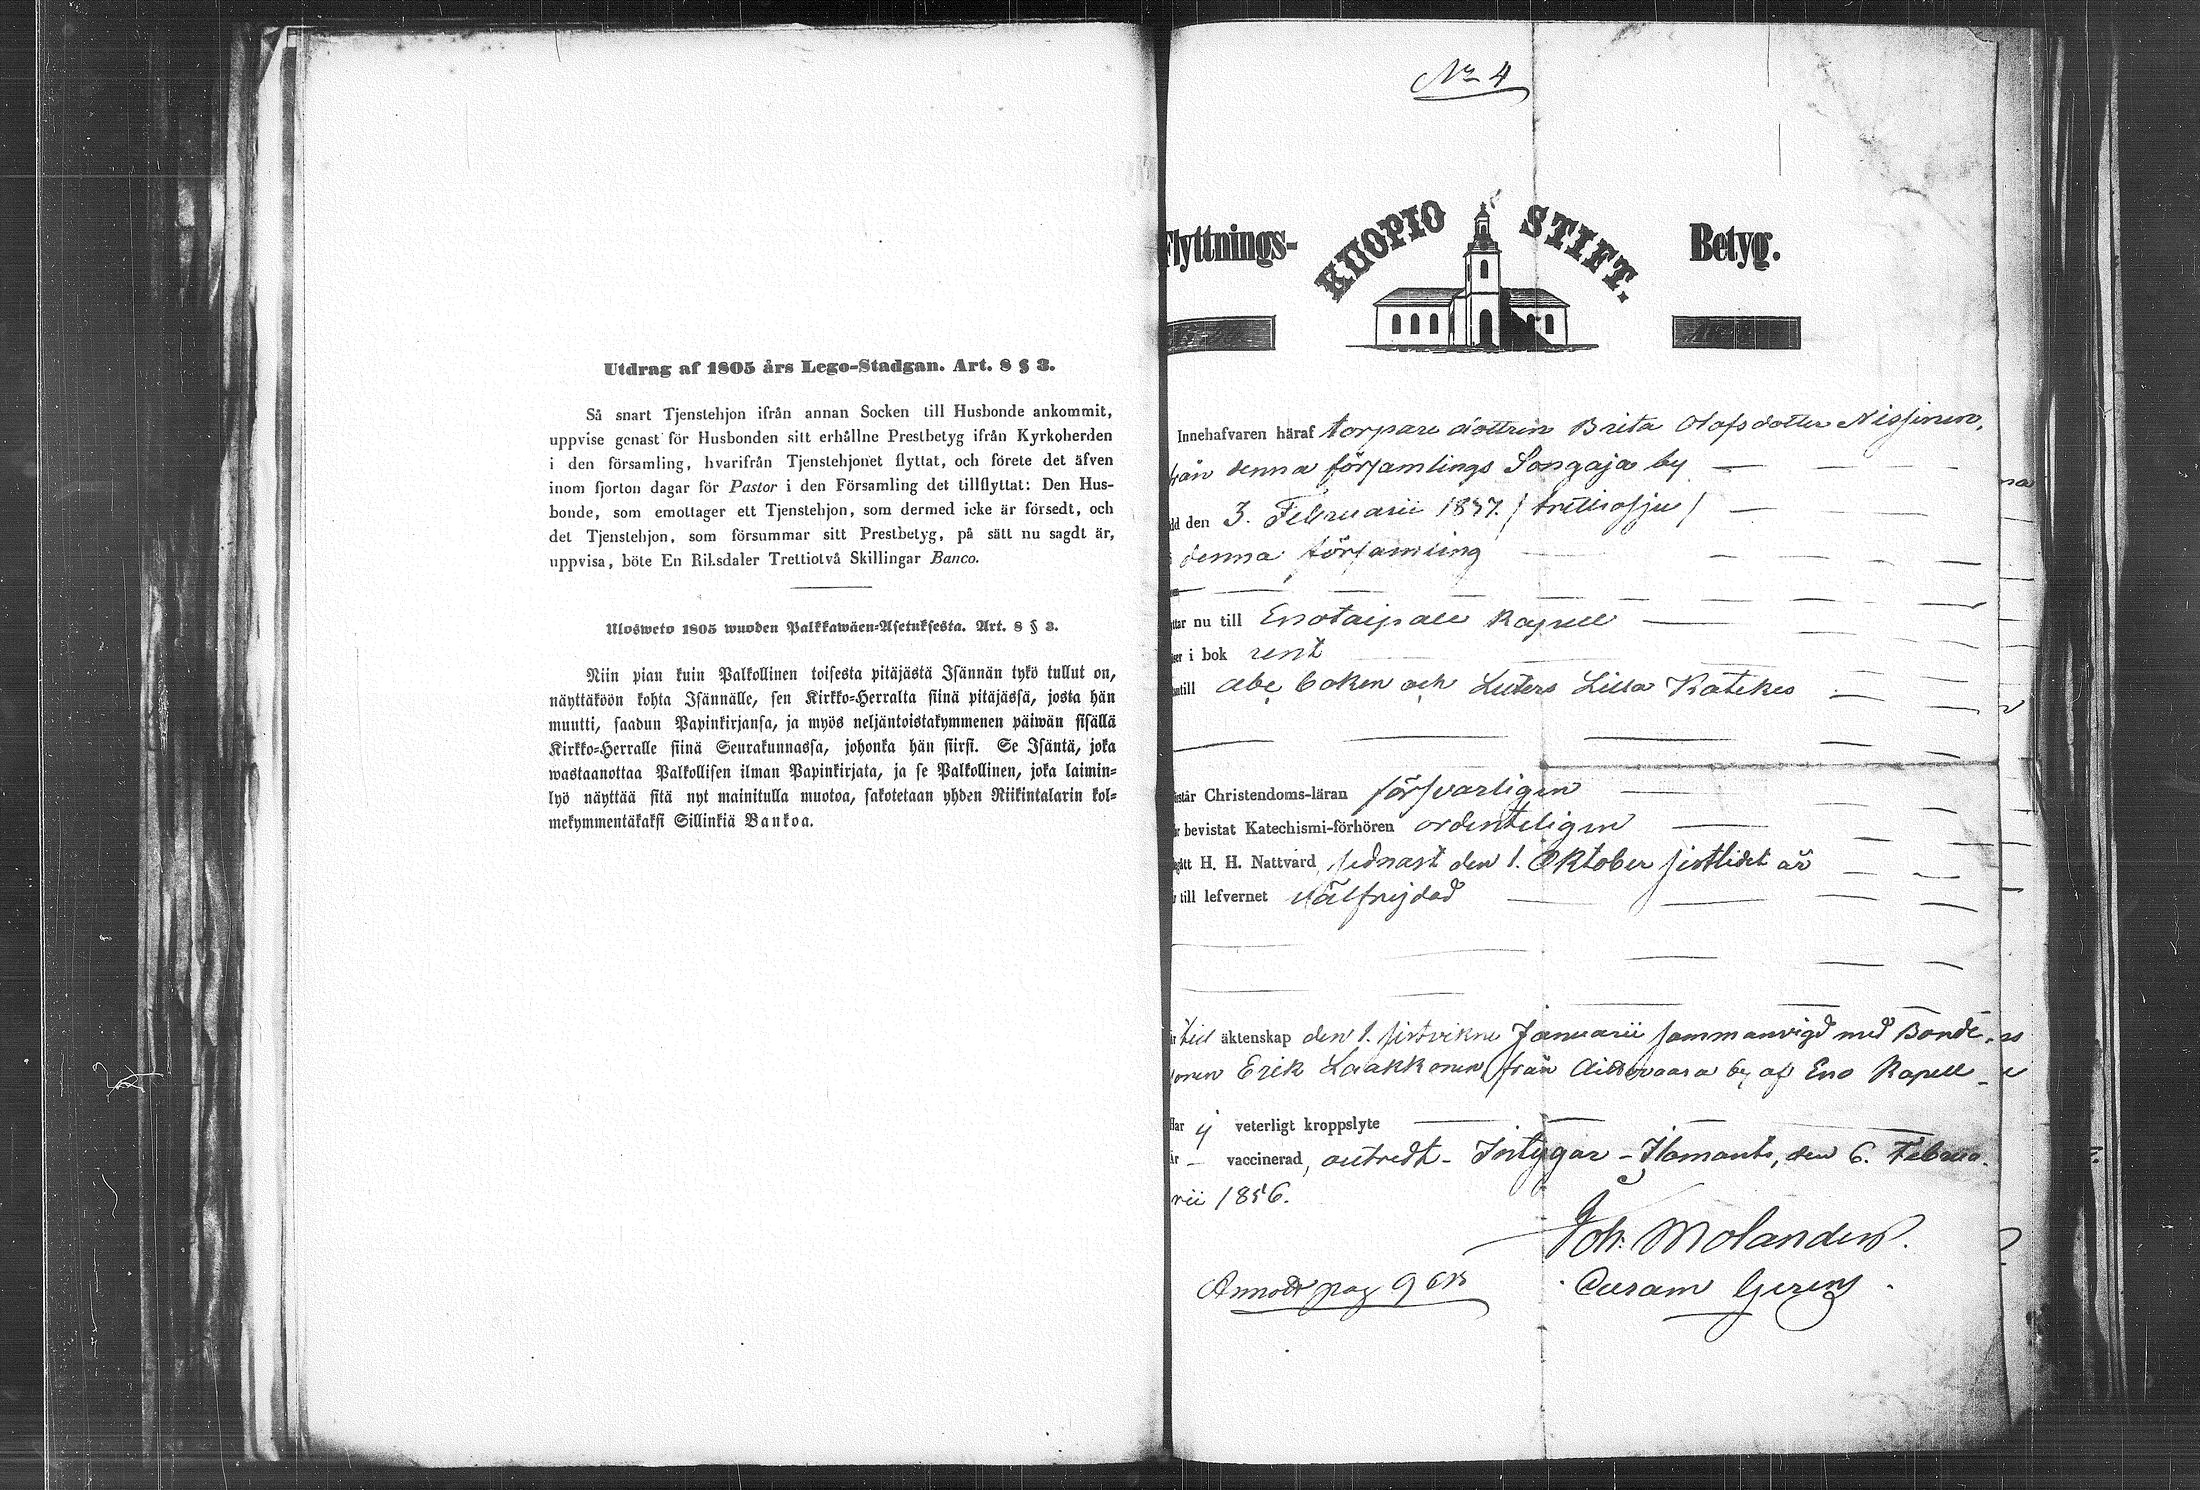 Utdrag af 1805 års Lego-Stadgan. Art. 8 § 3.
Så snart Tjenstehjon ifrån annan Socken till Husbonde ankommit,
uppvise genast för Husbonden sitt erhållne Prestbetyg ifrån Kyrkoherden
i den församling, hvarifrån Tjenstehjonet flyttat, och förete det äfven
inom fjorton dagar för Pastor i den Församling det tillflyttat: Den Hus-
bonde, som emottager ett Tjenstehjon, som dermed icke är försedt, och
det Tjenstehjon, som försummar sitt Prestbetyg, på sätt nu sagdt är,
uppvisa, böte En Riksdaler Trettiotvå Skillingar Banco.
Ulosweto 1805 wuoden Palkkawäen-Asetuksesta. Art. 8 § 3.
Niin pian kuin Palkollinen toisesta pitäjästä Isännän tykö tullut on,
näyttäköön kohta Isännälle, sen Kirkko-Herralta siinä pitäjässä, josta hän
muutti, saadun Papinkirjansa, ja myös neljäntoistakymmenen päiwän sisällä
Kirkko-Herralle siinä Seurakunnassa, johonka hän siirsi. Se Isäntä, joka
wastaanottaa Palkollisen ilman Papinkirjata, ja se Palkollinen, joka laimin-
lyö näyttää sitä nyt mainitulla muotoa, sakotetaan yhden Riikintalarin kol-
mekymmentäkaksi Sillinkiä Bankoa.
No 4
Flyttnings- KUOPIO STIFT. Betyg.
Innehafvaren häraf torpare dottren Brita Olofsdotter Nissinen,
från denna församlings Songaja by
den 3. Februarii 1837. / trettiosju /
denna församling
nu till Enotaipale Kapell
i bok rent
till abc boken och Luters Lilla Katekes
Christendoms-läran försvarligen
bevistat Katechismi-förhören ordenteligen
H. H. Nattvard sednast den 1. Oktober sistlidet år
till lefvernet välfrejdad
till äktenskap den 1. sistvikne Januarii sammanvigd med Bonde-
sonen Erik Laakkonen från by af Eno Kapell
Har ej veterligt kroppslyte
är vaccinerad, Intygar Ilomants, den 6. Februa-
rii 1856.
Joh. Molander.
Annoterat pag 9
Curam Gerens.